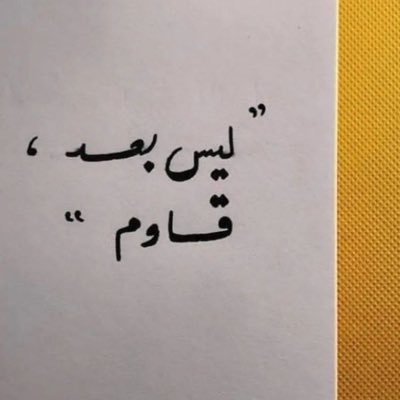 ” ليس بعد ،
قاوم “